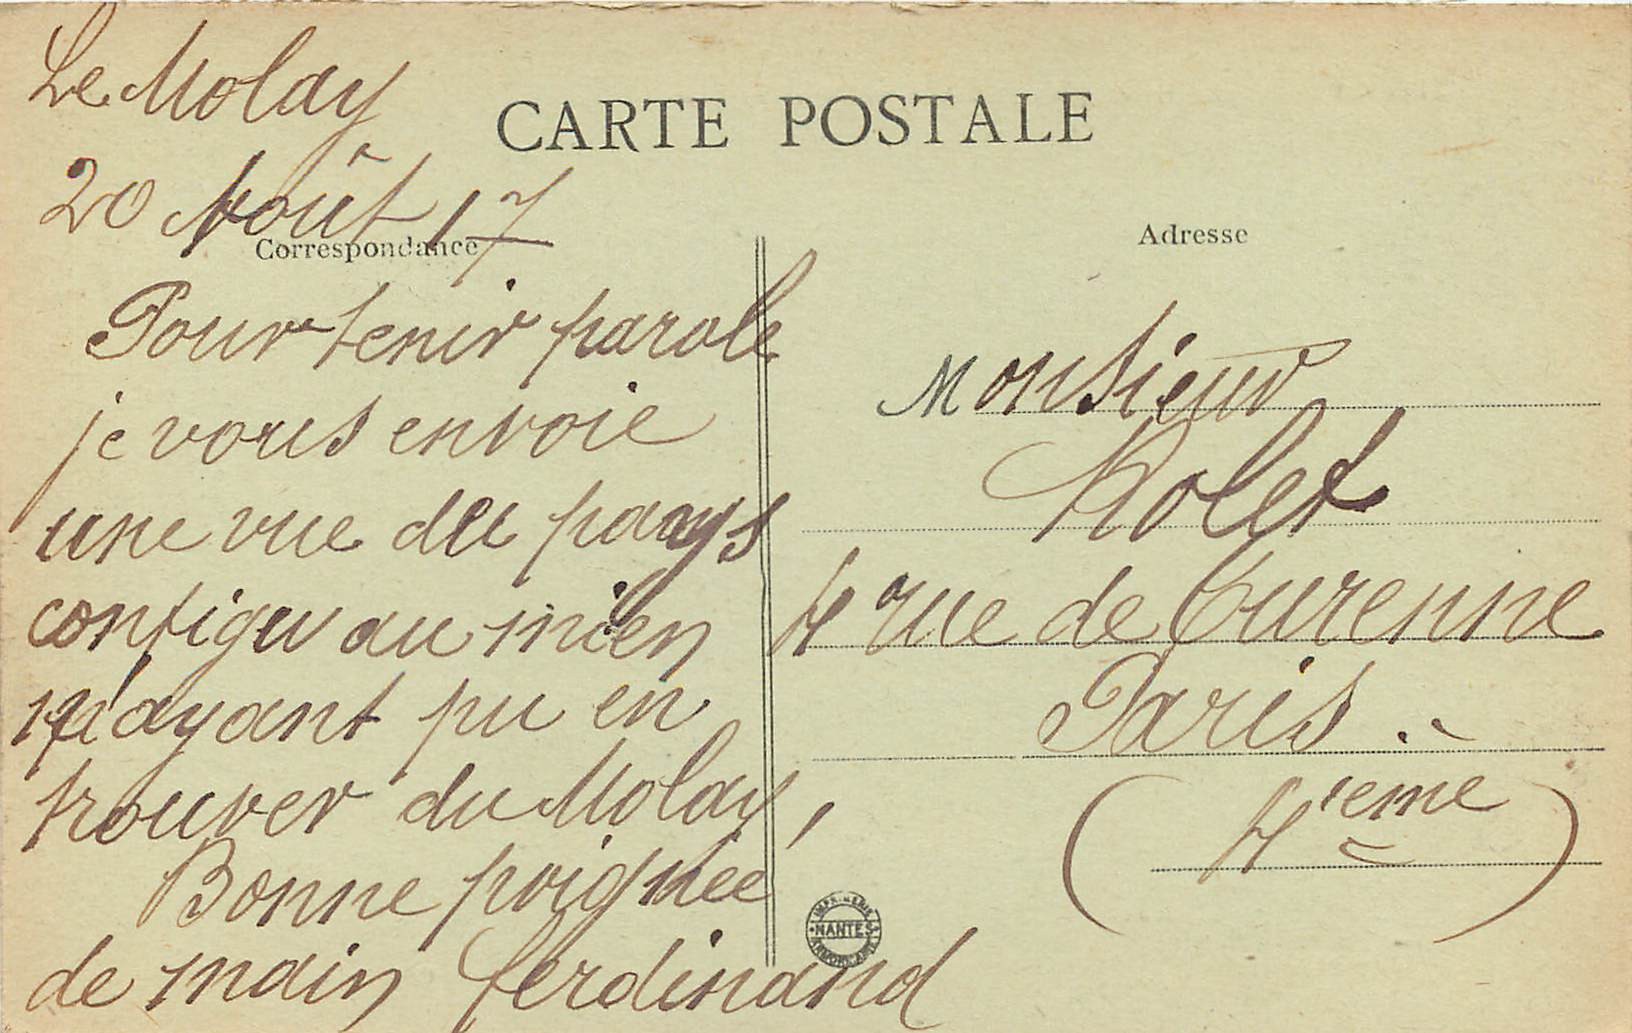 Le Molay
CARTE POSTALE
20 Août 17
Correspondance
Pour tenir parole
je vous envoie
une vue du pays
contigu au mien
n'ayant pu en
trouver du Molay,
Bonne poignée
de main Ferdinand
Adresse
Monsieur
Rolet
4 rue de Turenne
Paris.
(4ième)
IMPRIMERIE
NANTES
ARMORICAINE